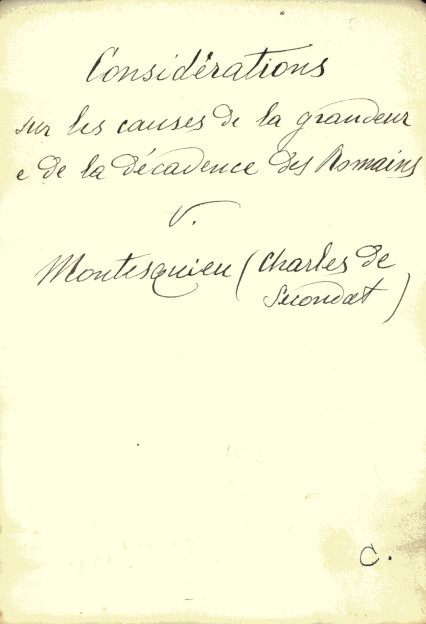 Considérations
sur les causes de la grandeur
e de la décadence des Romains
V.
Montesquieu (Charles de
Secondat)
C.